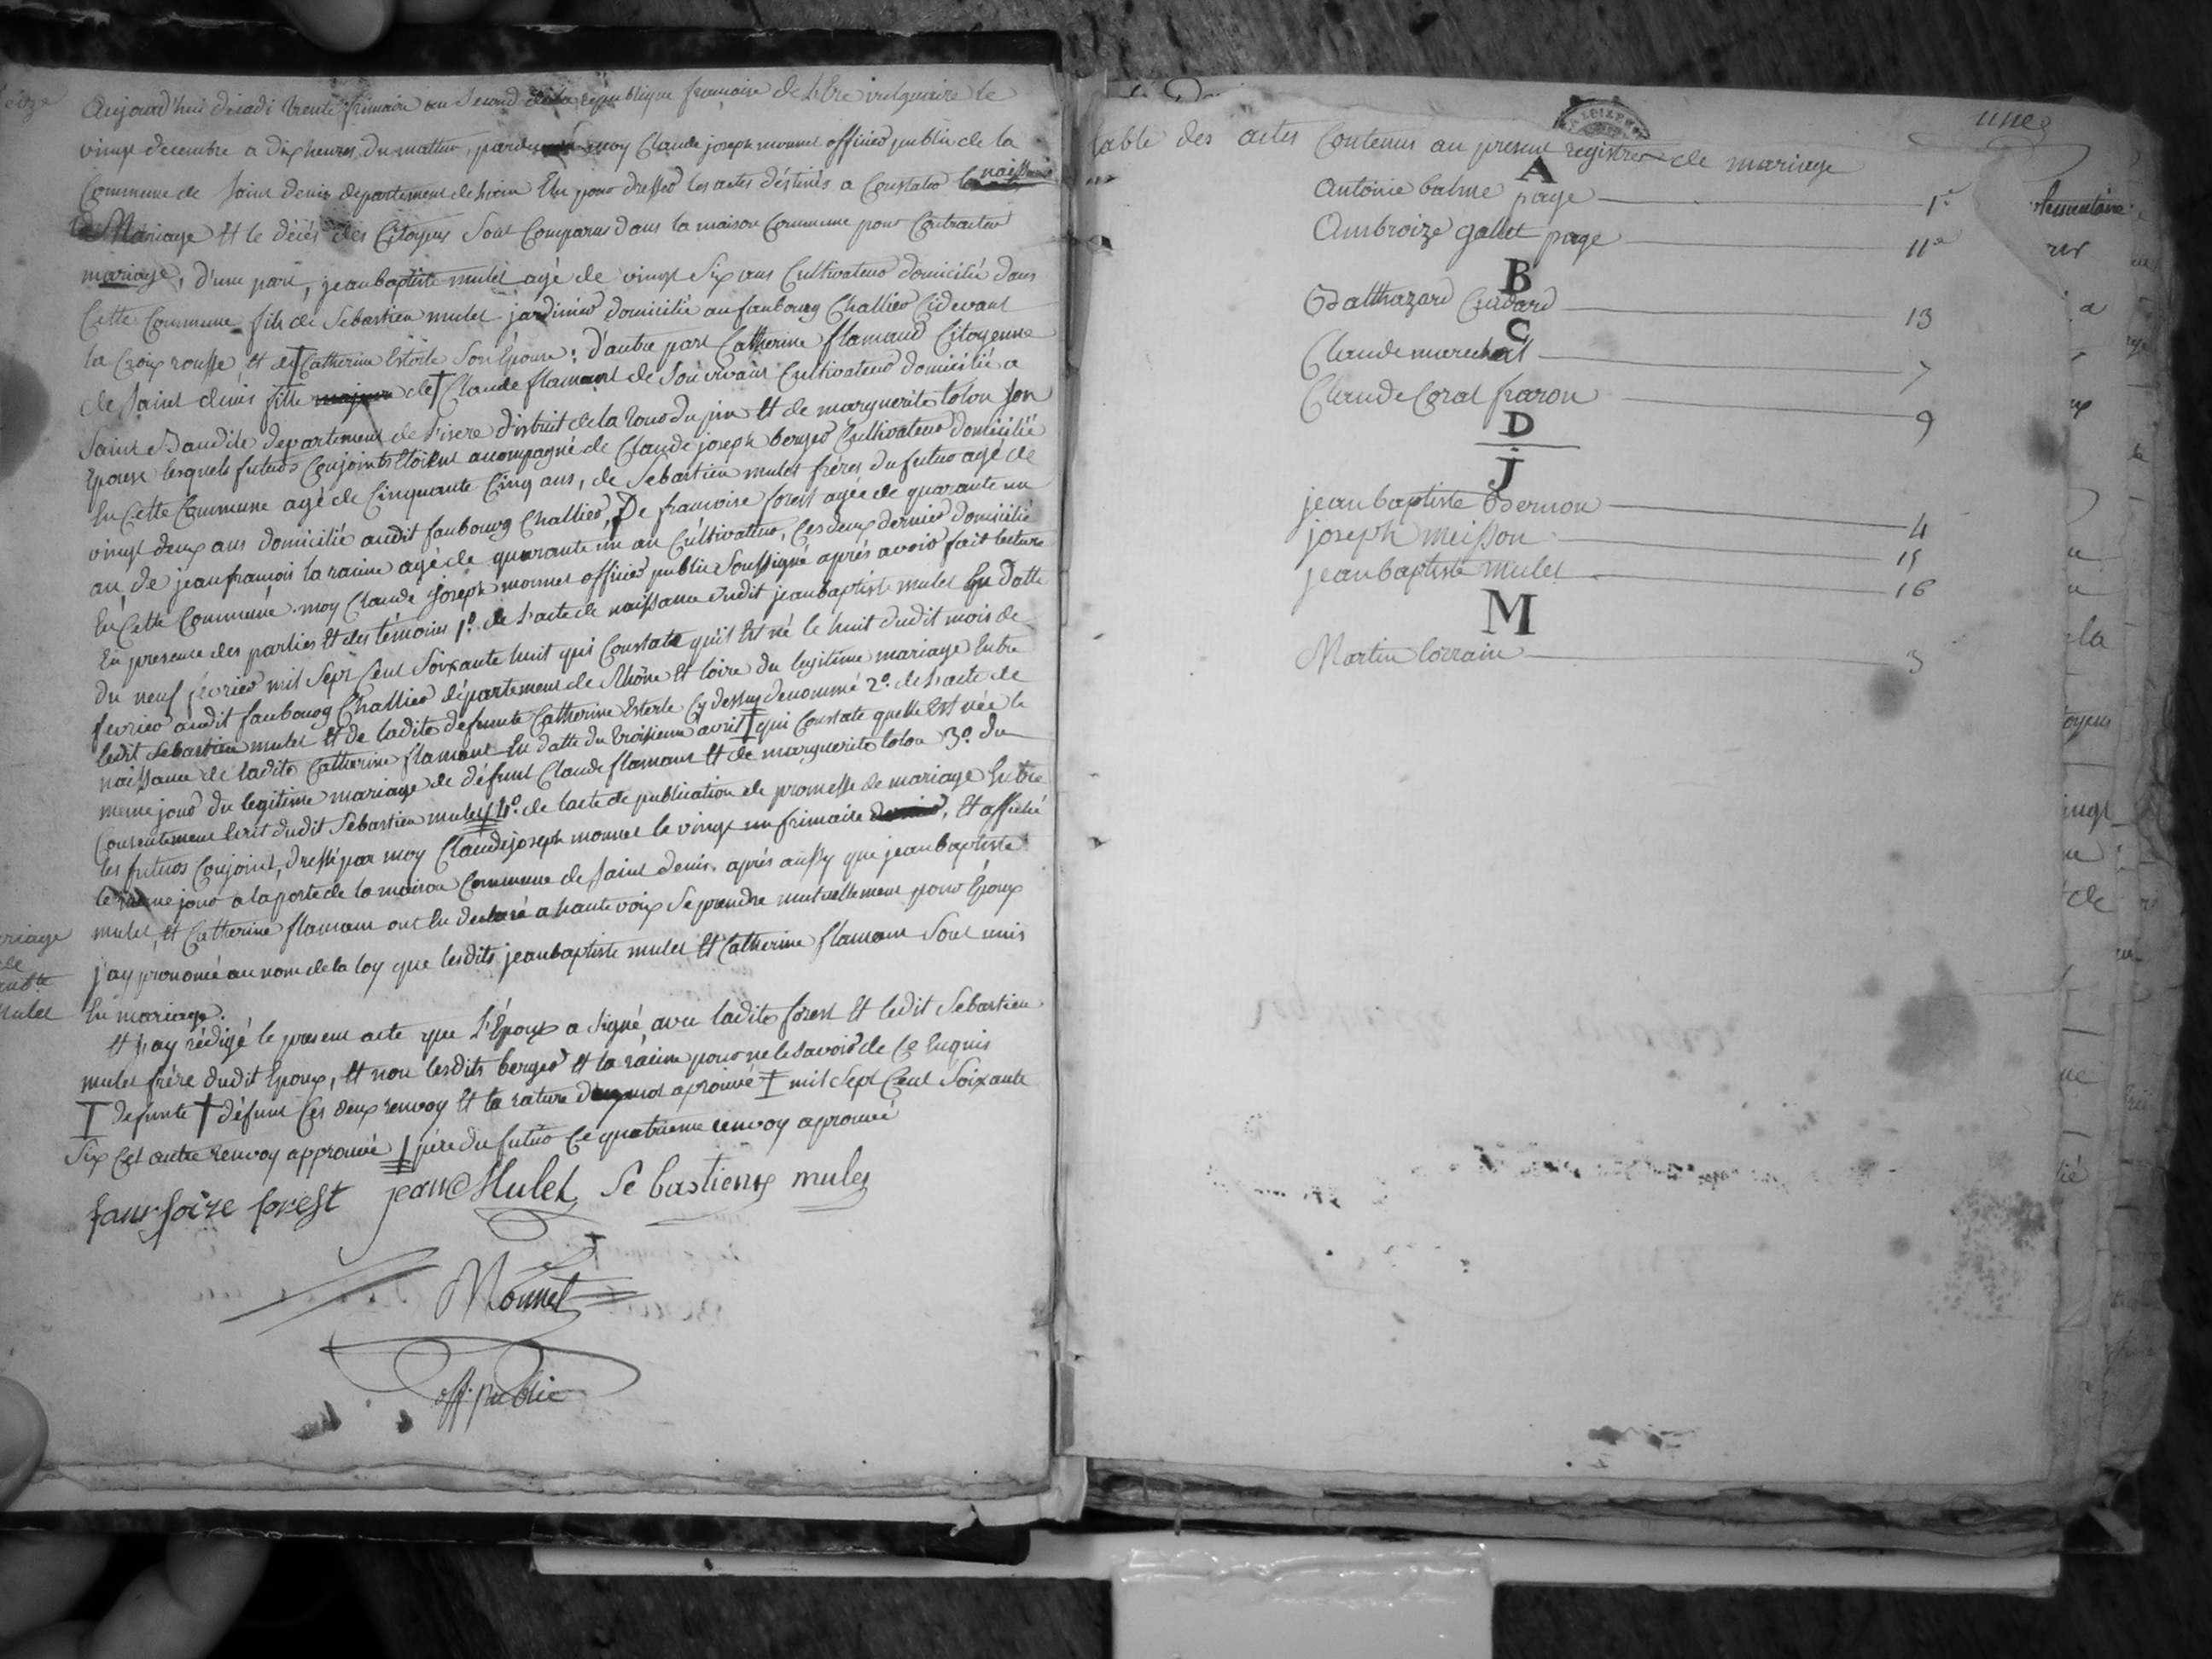 Aujourd'hui décadi trente frimaire an second de la republique francaise de l'Ere vulguaire le
vingt decembre a dix heures du mattin, pardevant moy Claude joseph monnet officier public de la
Commune de Saint denis département de l'ain Elu pour dresser les actes déstinés a Constater les naissances
Mariage Et le décés des Citoyens Sont Comparus dans la maison Commune pour Contracter
mariage, d'une part, jean baptiste mulet agé de vingt Six ans Cultivateur domicilié dans
Cette Commune fils de Sebastien mulet jardinier domicilié au faubourg Challier Cidevant
la Croix rousse, et de † Catherine Esterle Son Epouse; d'autre part Catherine flamand Citoyenne
de Saint denis fille majeure de † Claude flamant de Son vivant Cultivateur domicilié a
Saint Baudile departement de l'isere district de la tour du pin Et de marguerite tolon Son
Epouse lesquels futurs Conjoints Etoient acompagné de Claude joseph berger Cultivateur domicilié
En Cette Commune agé de Cinquante Cinq ans, de Sebastien mulet fréres du futur agé de
vingt deux ans domicilié audit faubourg Challier, De francoise forest agée de quarante un
an, de jean francois la racine agé de quarante un an Cultivateur, Ces deux dernier domicilié
En Cette Commune. moy Claude joseph monnet officier public Soussigné aprés avoir fait lecture
En presence des parties Et des témoins 1º de l'acte de naissance dudit jean baptiste mulet En datte
du neuf fevrier mil Sept Cent Soixante huit qui Constate qu'il Est né le huit dudit mois de
fevrier audit faubourg Challier département de Rhône Et loire du legitime mariage Entre
ledit Sebastien mulet Et de ladite defunte Catherine Esterle Cy dessus denommé 2º de l'acte de
naissance de ladite Catherine flamant En datte du troisieme avril ‡ qui Constate quelle Est née le
meme jour du legitime mariage de défunt Claude flamant Et de marguerite tolon 3º du
Consentement Ecrit dudit Sebastien mulet 4º de lacte de publication de promesse de mariage Entre
les futurs Conjoint, dressé par moy Claude joseph monnet le vingt un frimaire dernier, Et affiché
le meme jour a la porte de la maison Commune de Saint denis. aprés aussy que jean baptiste
mulet, Et Catherine flamant ont Eu declaré a haute voix Se prendre mutuellement pour Epoux
j'ay prononcé au nom de la loy que lesdits jean baptiste mulet Et Catherine flamant Sont unis
En mariage.
Et j'ay rédigé le present acte que l'Epoux a Signé avec ladite forest Et ledit Sebastien
mulet frére dudit Epoux, Et non lesdits berger Et la racine pour ne le Savoir de Ce Enquis
‡ defunte † défunt Ces deux renvoy Et la rature d'un mot aprouvé ‡ mil Sept Cent Soixante
Six Cet autre renvoy approuvé pére du futur Ce quatrieme renvoy aprouvé
fransoize forest jean Mulet Se bastient mulet
Monnet
off. public
une
table des actes Contenus au present registre de mariage
A
Antoine balme page 1e
Ambroize gallet page 11e
B
Balthazard Curdard 13
C
Claude marechal 7
Claude Coral fraron 9
D
J
jean baptiste Bernon 4
joseph meisson 15
jean baptiste mulet 16
M
Martin lorrain 3